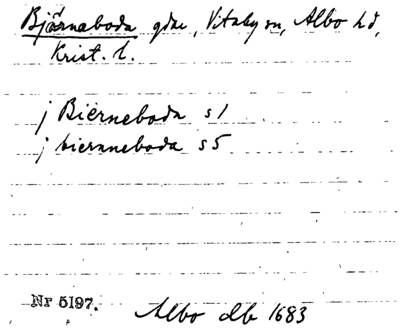 Björnaboda gdr, Vitaby sn, Albo hd,
Krist. l.
j Bierneboda s 1
j biernneboda s 5
Nr 5197.
Albo db 1683